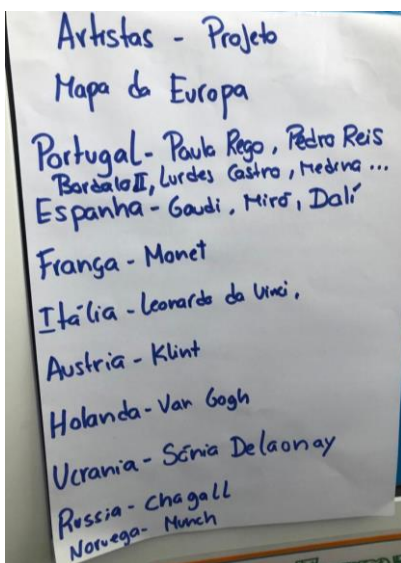 Artistas - Projeto
Mapa da Europa
Portugal - Paula Rego, Pedro Reis
Bordalo II, Lurdes Castro, Medina ...
Espanha - Gaudi, Miró, Dalí
França - Monet
Itália - Leonardo da Vinci.
Austria - Klint
Holanda - Van Gogh
Ucrania - Sónia Delaonay
Russia - Chagall
Noruega - Munch